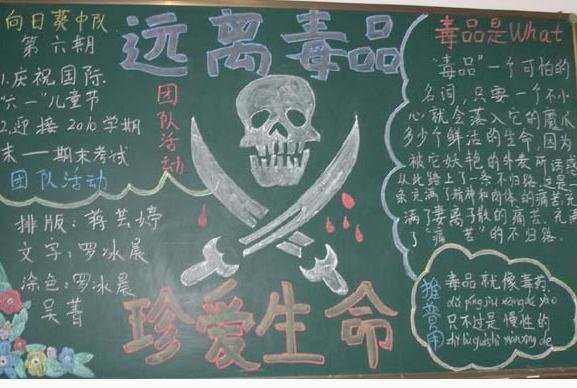 向日葵中队
第六期
1.庆祝国际
"六一"儿童节
2.迎接2010学期
末——期末考试
团队活动
排版：蒋芸婷
文字：罗冰晨
涂色：罗冰晨
吴菁
远离毒品
团队活动
珍爱生命
毒品是What
"毒品"一个可怕的
名词，只要一个不小
心就会落入它的魔爪
多少个鲜活的生命，因为
被它妖艳的外表所诱惑
从此踏上了一条不归路，这是一
条充满了精神和肉体的痛苦，充
满了妻离子散的痛苦，充满
了"痛苦"的不归路。
毒品就像毒药
只不过是慢性的